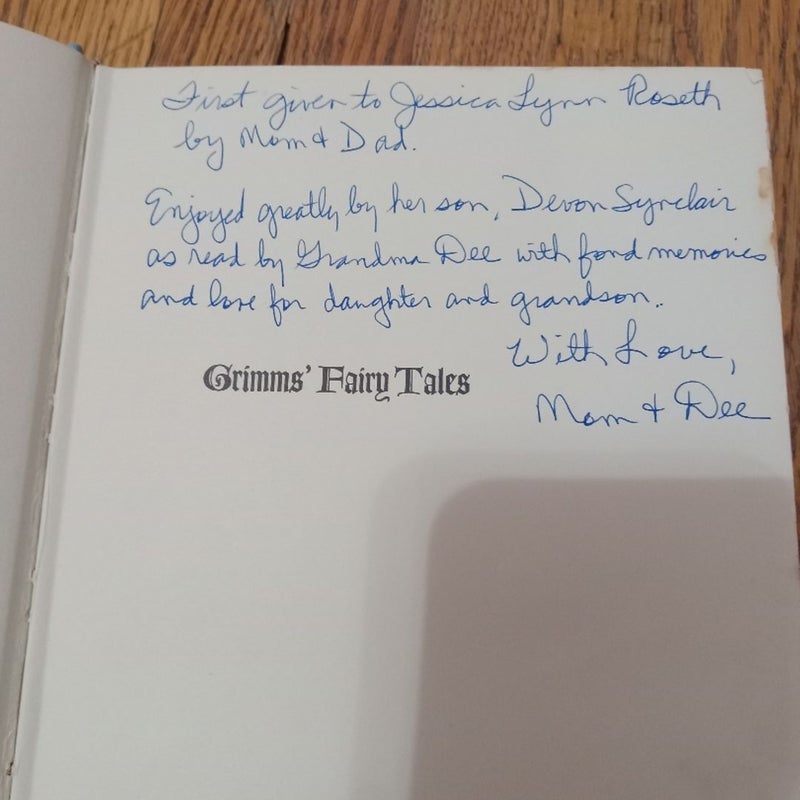 First given to Jessica Lynn Roseth
by Mom & Dad.
Enjoyed greatly by her son, Devon Synclair
as read by Grandma Dee with fond memories
and love for daughter and grandson..
With Love,
Mom & Dee
Grimms' Fairy Tales